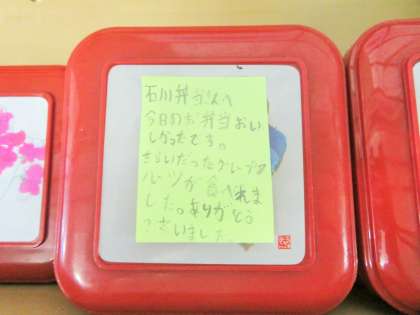 石川弁当さんへ
今日のお弁当おい
しかったです。
きらいだったグレープフ
ルーツが食べれま
した。ありがとう
ございました。